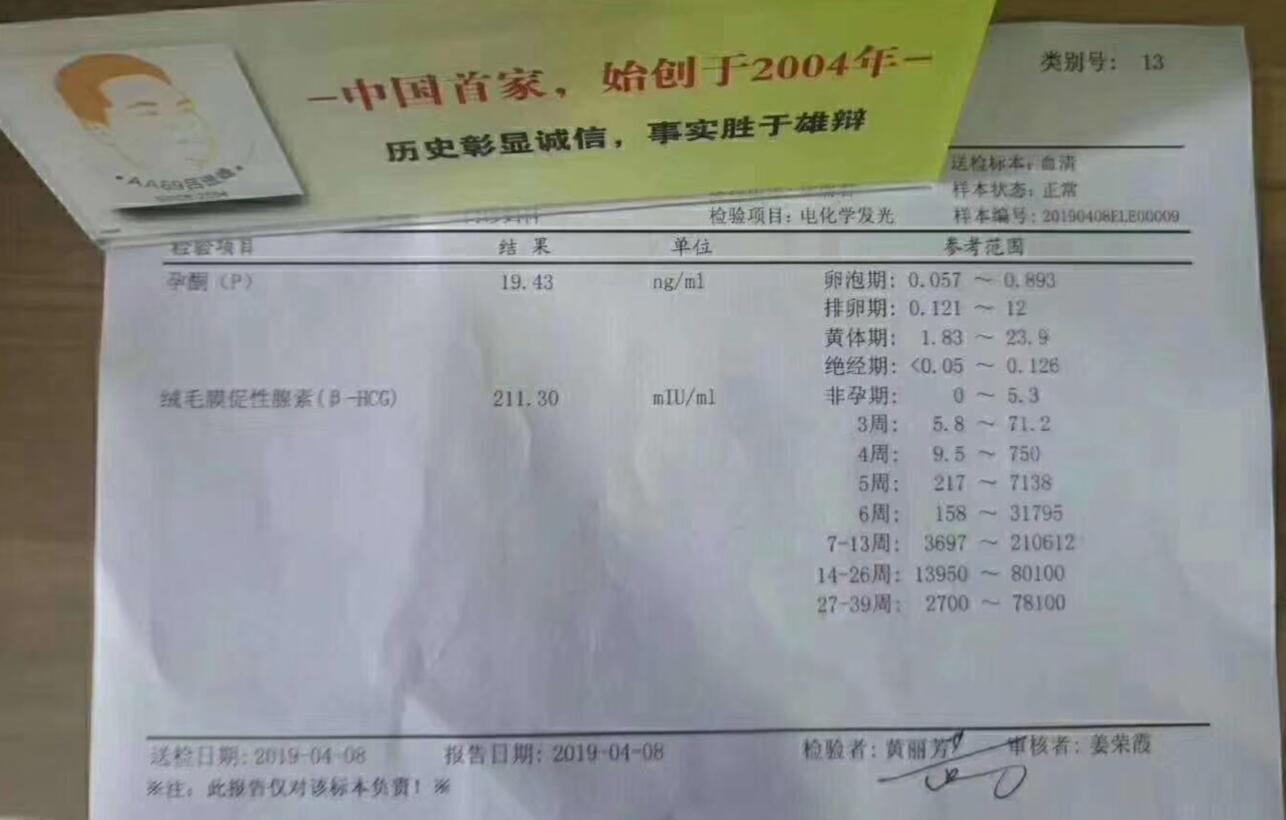 －中国首家，始创于2004年－
历史彰显诚信，事实胜于雄辩
类别号： 13
送检标本：血清
样本状态：正常
检验项目：电化学发光 样本编号：20190408ELE00009
检验项目 结 果 单位 参考范围
孕酮（P） 19.43 ng/ml 卵泡期：0.057 ～ 0.893
排卵期：0.121 ～ 12
黄体期： 1.83 ～ 23.9
绝经期：<0.05 ～ 0.126
绒毛膜促性腺素(β-HCG) 211.30 mIU/ml 非孕期： 0 ～ 5.3
3周： 5.8 ～ 71.2
4周： 9.5 ～ 750
5周： 217 ～ 7138
6周： 158 ～ 31795
7-13周： 3697 ～ 210612
14-26周：13950 ～ 80100
27-39周： 2700 ～ 78100
送检日期：2019-04-08 报告日期：2019-04-08 检验者：黄丽芳 审核者：姜荣霞
※注：此报告仅对该标本负责！※